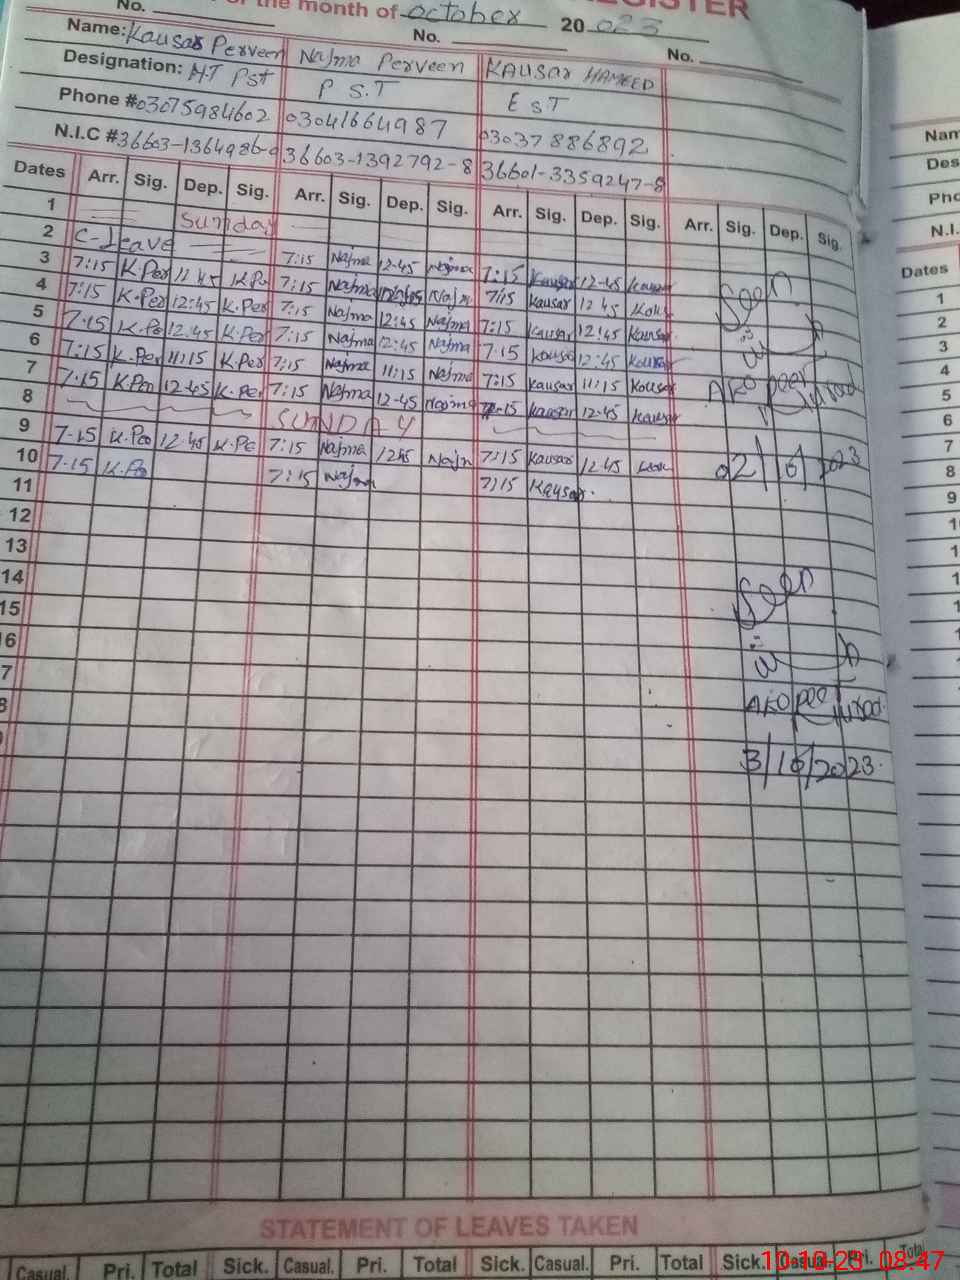 REGISTER
of the month of October 2023
No. No. No.
Name: Kausar Perveen Najma Perveen Kausar Hameed
Designation: H.T Pst P S.T E S T
Phone # 03075984602 03041664987 03037886892
N.I.C # 36603-1364986- 36603-1392792-8 36601-3359247-8
Dates Arr. Sig. Dep. Sig. Arr. Sig. Dep. Sig. Arr. Sig. Dep. Sig. Arr. Sig. Dep. Sig.
1 Sunday
2 C-Leave 7:15 Najma 12-45 Najma 7:15 Kausar 12-45 Kausar
3 7:15 K.Per 11 45 K.Per 7:15 Najma 12:45 Najm 7:15 Kausar 12 45 Kau
4 7:15 K.Per 12:45 K.Per 7:15 Najma 12:45 Najma 7:15 Kausar 12:45 Kausar
5 7.15 K.Pe 12:45 K.Per 7:15 Najma 12:45 Najma 7.15 Kausa 12:45 Kausar
6 7:15 K.Per 11:15 K.Per 7:15 Najma 11:15 Najma 7:15 Kausar 11:15 Kausar
7 7.15 K.Per 12.45 K.Pe 7:15 Najma 12-45 Najma 7-15 Kausar 12-45 Kausar
8 SUNDAY
9 7-15 K.Pe 12.45 K.Pe 7:15 Najma 1245 Najm 7:15 Kausar 12 45 Kau
10 7.15 K.Pe 7:15 Najma 7:15 Kausar
11
12
13
14
15
16
7
8
Seen
AEO
02/10/2023
Seen
AEO
3/10/2023
STATEMENT OF LEAVES TAKEN
Casual. Pri. Total Sick. Casual. Pri. Total Sick. Casual. Pri. Total Sick. Casual. Pri. Total
Nam
Des
Pho
N.I.
Dates
1
2
3
4
5
6
7
8
9
10-10-23 08:47